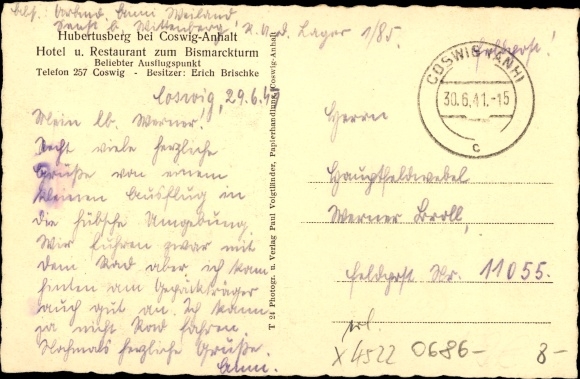 Abs: Arbmd. Anni Weiland
Senst b. Wittenberg, R.A.d. Lager 1/85.
Hubertusberg bei Coswig-Anhalt
Hotel u. Restaurant zum Bismarckturm
Beliebter Ausflugspunkt
Telefon 257 Coswig - Besitzer: Erich Brischke
Coswig, 29.6.41
Mein lb. Werner!
Recht viele herzliche
Grüße von einem
kleinen Ausflug in
die hübsche Umgebung.
Wir fuhren zwar mit
dem Rad aber, ich kam
hinten am Gepäckträger
auch gut an. Ich kann
ja nicht Rad fahren.
Nochmals herzliche Grüße.
Anni.
T 24 Photogr. u. Verlag Paul Voigtländer, Papierhandlung, Coswig-Anhalt
Feldpost!
COSWIG (ANH)
30.6.41.-15
c
Herrn
Hauptfeldwebel
Werner Broll,
Feldpost Nr. 11055.
X4522 0686- 8-